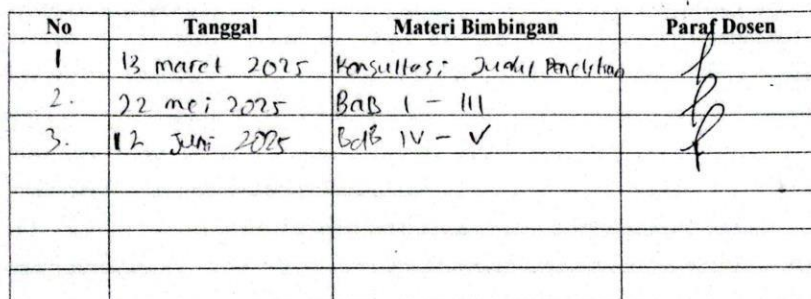 No Tanggal Materi Bimbingan Paraf Dosen
1 13 maret 2025 Konsultasi Judul Penelitian
2. 22 mei 2025 BAB I - III
3. 12 Juni 2025 BAB IV - V